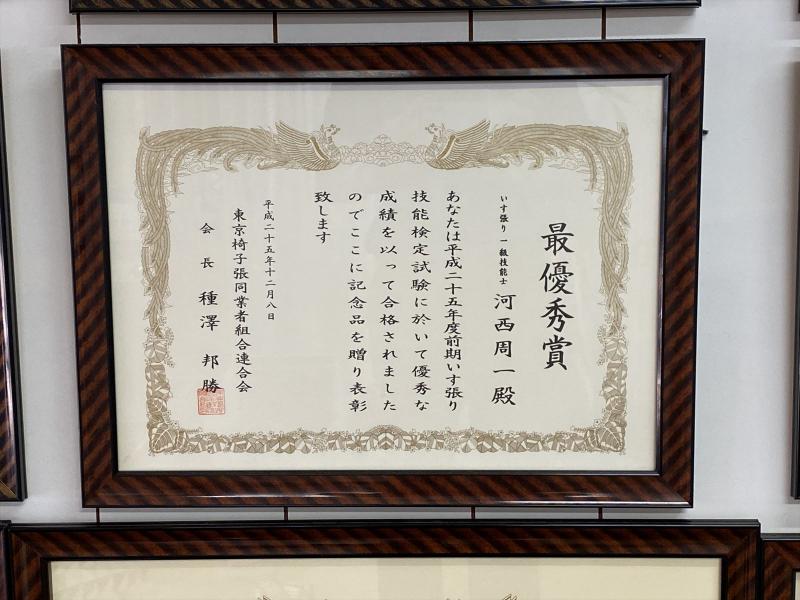 最優秀賞
いす張り 一級技能士 河西周一殿
あなたは平成二十五年度前期いす張り
技能検定試験に於いて優秀な
成績を以って合格されました
のでここに記念品を贈り表彰
致します
平成二十五年十二月八日
東京椅子張同業者組合連合会
会長 種澤 邦勝